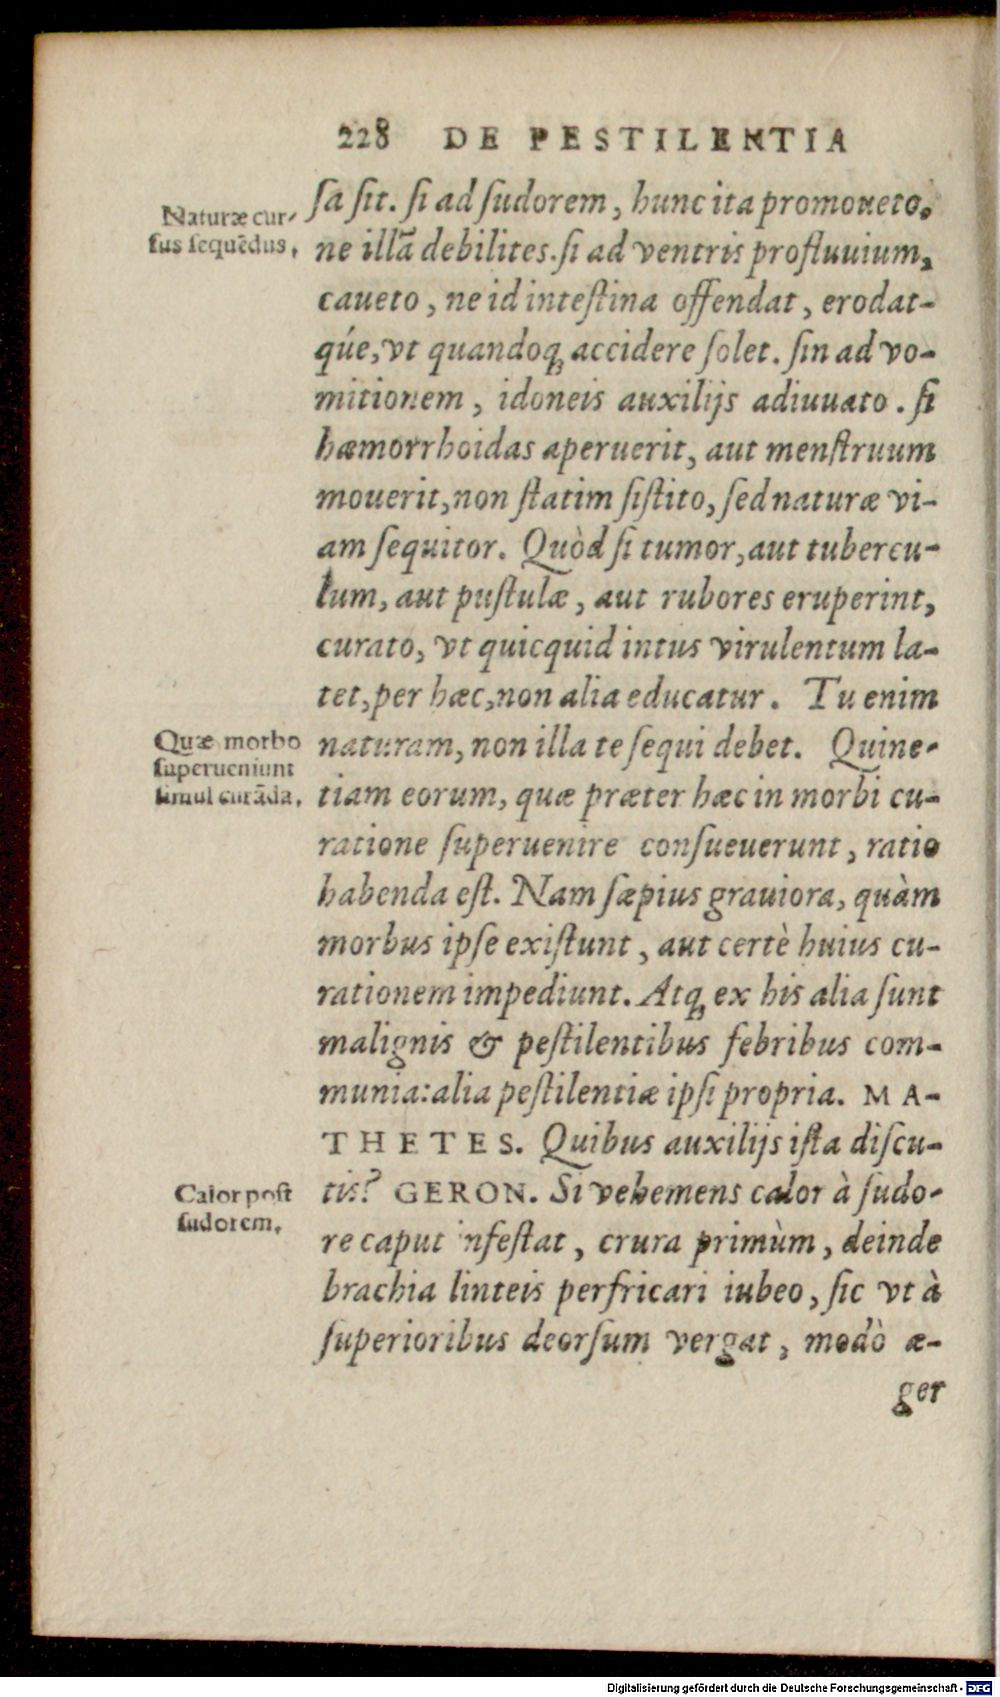 228 DE PESTILENTIA
Naturæ cur-
sus sequēdus.
ſa ſit. ſi ad ſudorem, hunc ita promoueto,
ne illā debilites. ſi ad ventris profluuium,
caueto, ne id inteſtina offendat, erodat-
qúe, vt quandoq; accidere ſolet. ſin ad vo-
mitionem, idoneis auxilijs adiuuato. ſi
hæmorrhoidas aperuerit, aut menſtruum
mouerit, non ſtatim ſiſtito, ſed naturæ vi-
am ſequitor. Quòd ſi tumor, aut tubercu-
lum, aut puſtulæ, aut rubores eruperint,
curato, vt quicquid intus virulentum la-
tet, per hæc, non alia educatur. Tu enim
Quæ morbo
ſuperueniunt
ſimul curāda.
naturam, non illa te ſequi debet. Quine-
tiam eorum, quæ præter hæc in morbi cu-
ratione ſuperuenire conſueuerunt, ratio
habenda eſt. Nam ſæpius grauiora, quàm
morbus ipſe exiſtunt, aut certè huius cu-
rationem impediunt. Atq; ex his alia ſunt
malignis & peſtilentibus febribus com-
munia: alia peſtilentiæ ipſi propria. MA-
THETES. Quibus auxilijs iſta diſcu-
Calor poſt
ſudorem.
tis? GERON. Si vehemens calor à ſudo-
re caput infeſtat, crura primùm, deinde
brachia linteis perfricari iubeo, ſic vt à
ſuperioribus deorſum vergat, modò æ-
ger
Digitalisierung gefördert durch die Deutsche Forschungsgemeinschaft - DFG